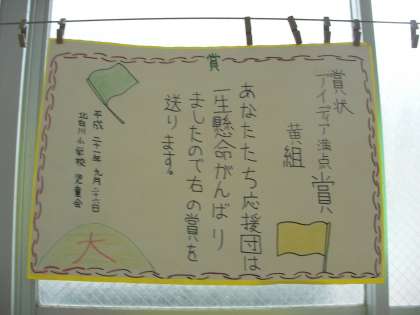 賞
賞状
アイディア満点賞
黄組
あなたたち応援団は
一生懸命がんばり
ましたので右の賞を
送ります。
平成二十一年九月二十六日
北白川小学校 児童会
大